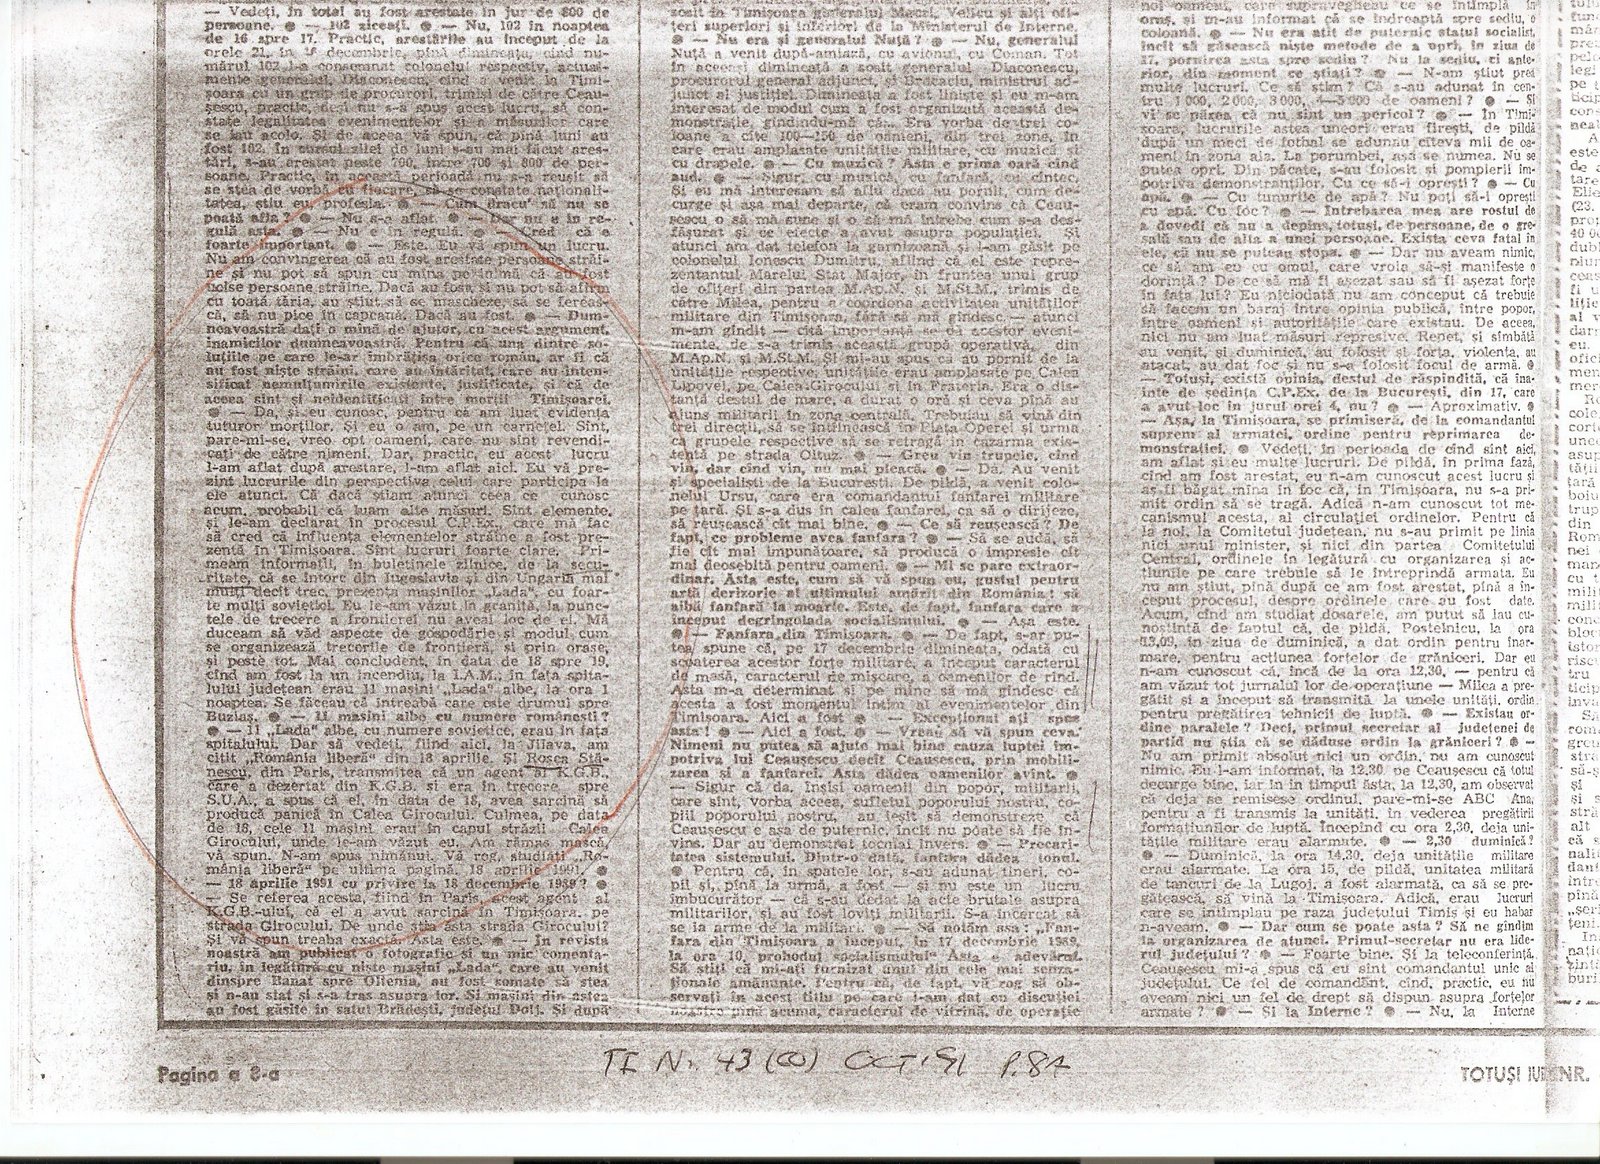 — Vedeți, în total au fost arestate în jur de 800 de
persoane. ● — 102 ziceați. ● — Nu, 102 în noaptea
de 16 spre 17. Practic, arestările au început de la
orele 21, în 16 decembrie, pînă dimineața, cînd nu-
mărul 102 l-a consemnat colonelul respectiv, actual-
mente generalul, Diaconescu, cînd a venit la Timi-
șoara cu un grup de procurori, trimiși de către Ceau-
șescu, practic, deși nu s-a spus acest lucru, să con-
state legalitatea evenimentelor și a măsurilor care
se iau acolo. Și de aceea vă spun, că pînă luni au
fost 102. În cursul zilei de luni s-au mai făcut ares-
tări, s-au arestat peste 700, între 700 și 800 de per-
soane. Practic, în această perioadă nu s-a reușit să
se stea de vorbă cu fiecare, să se constate naționali-
tatea, știu eu, profesia. ● — Cum dracu' să nu se
poată afla? ● — Nu s-a aflat. ● — Dar nu e în re-
gulă asta. ● — Nu e în regulă. ● — Cred că e
foarte important. ● — Este. Eu vă spun un lucru.
Nu am convingerea că au fost arestate persoane străi-
ne și nu pot să spun cu mîna pe inimă că au fost
culse persoane străine. Dacă au fost, și nu pot să afirm
cu toată tăria, au știut să se mascheze, să se fereas-
că, să nu pice în capcană. Dacă au fost. ● — Dum-
neavoastră dați o mînă de ajutor, cu acest argument,
inamicilor dumneavoastră. Pentru că una dintre so-
luțiile pe care le-ar îmbrățișa orice român, ar fi că
au fost niște străini, care au întărîtat, care au inten-
sificat nemulțumirile existente, justificate, și că de
aceea sînt și neidentificați între morții Timișoarei.
● — Da, și eu cunosc, pentru că am luat evidența
tuturor morților. Și eu o am, pe un carnețel. Sînt,
pare-mi-se, vreo opt oameni, care nu sînt revendi-
cați de către nimeni. Dar, practic, eu acest lucru
l-am aflat după arestare, l-am aflat aici. Eu vă pre-
zint lucrurile din perspectiva celui care participa la
ele atunci. Că dacă știam atunci ceea ce cunosc
acum, probabil că luam alte măsuri. Sînt elemente,
și le-am declarat în procesul C.P.Ex., care mă fac
să cred că influența elementelor străine a fost pre-
zentă în Timișoara. Sînt lucruri foarte clare. Pri-
meam informații, în buletinele zilnice, de la secu-
ritate, că se întorc din Iugoslavia și din Ungaria mai
mulți decît trec, prezența mașinilor „Lada", cu foar-
te mulți sovietici. Eu le-am văzut în graniță, la punc-
tele de trecere a frontierei nu aveai loc de ei. Mă
duceam să văd aspecte de gospodărie și modul cum
se organizează trecerile de frontieră, și prin orașe,
și peste tot. Mai concludent, în data de 18 spre 19,
cînd am fost la un incendiu, la I.A.M., în fața spita-
lului județean erau 11 mașini „Lada" albe, la ora 1
noaptea. Se făceau că întreabă care este drumul spre
Buziaș. ● — 11 mașini albe cu numere românești?
● — 11 „Lada" albe, cu numere sovietice, erau în fața
spitalului. Dar să vedeți, fiind aici, la Jilava, am
citit „România liberă" din 18 aprilie. Și Roșca Stă-
nescu, din Paris, transmitea că un agent al K.G.B.,
care a dezertat din K.G.B. și era în trecere spre
S.U.A., a spus că el, în data de 18, avea sarcină să
producă panică în Calea Girocului. Culmea, pe data
de 18, cele 11 mașini erau în capul străzii Calea
Girocului, unde le-am văzut eu. Am rămas mască,
vă spun. N-am spus nimănui. Vă rog, studiați „Ro-
mânia liberă" pe ultima pagină, 18 aprilie 1991. ●
— 18 aprilie 1991 cu privire la 18 decembrie 1989? ●
— Se referea acesta, fiind în Paris, acest agent al
K.G.B.-ului, că el a avut sarcină în Timișoara, pe
strada Girocului. De unde știa ăsta strada Girocului?
Și vă spun treaba exactă. Asta este. ● — În revista
noastră am publicat o fotografie și un mic comenta-
riu, în legătură cu niște mașini „Lada", care au venit
dinspre Banat spre Oltenia, au fost somate să stea
și n-au stat și s-a tras asupra lor. Și mașini din astea
au fost găsite în satul Brădești, județul Dolj. Și după
sosit în Timișoara generalul Macri, Velicu și alți ofi-
țeri superiori și inferiori de la Ministerul de Interne.
● — Nu era și generalul Nuță? ● — Nu, generalul
Nuță a venit după-amiază, cu avionul, cu Coman. Tot
în aceeași dimineață a sosit generalul Diaconescu,
procurorul general adjunct, și Bracaciu, ministru ad-
junct al justiției. Dimineața a fost liniște și eu m-am
interesat de modul cum a fost organizată această de-
monstrație, gîndindu-mă că... Era vorba de trei co-
loane a cîte 100—150 de oameni, din trei zone, în
care erau amplasate unitățile militare, cu muzică și
cu drapele. ● — Cu muzică? Asta e prima oară cînd
aud. ● — Sigur, cu muzică, cu fanfară, cu cîntec.
Și eu mă interesam să aflu dacă au pornit, cum de-
curge și așa mai departe, că eram convins că Ceau-
șescu o să mă sune și o să mă întrebe cum s-a des-
fășurat și ce efecte a avut asupra populației. Și
atunci am dat telefon la garnizoană și l-am găsit pe
colonelul Ionescu Dumitru, aflînd că el este repre-
zentantul Marelui Stat Major, în fruntea unui grup
de ofițeri din partea M.Ap.N. și M.St.M., trimis de
către Milea, pentru a coordona activitatea unităților
militare din Timișoara, fără să mă gîndesc — atunci
m-am gîndit — cîtă importanță se dă acestor eveni-
mente, de s-a trimis această grupă operativă, din
M.Ap.N. și M.St.M. Și mi-au spus că au pornit de la
unitățile respective, unitățile erau amplasate pe Calea
Lipovei, pe Calea Girocului și în Fratelia. Era o dis-
tanță destul de mare, a durat o oră și ceva pînă au
ajuns militarii în zona centrală. Trebuiau să vină din
trei direcții, să se întîlnească în Piața Operei și urma
ca grupele respective să se retragă în cazarma exis-
tentă pe strada Oituz. ● — Greu vin trupele, cînd
vin, dar cînd vin, nu mai pleacă. ● — Da. Au venit
și specialiști de la București. De pildă, a venit colo-
nelul Ursu, care era comandantul fanfarei militare
pe țară. Și s-a dus în calea fanfarei, ca să o dirijeze,
să reușească cît mai bine. ● — Ce să reușească? De
fapt, ce probleme avea fanfara? ● — Să se audă, să
fie cît mai impunătoare, să producă o impresie cît
mai deosebită pentru oameni. ● — Mi se pare extraor-
dinar. Asta este, cum să vă spun eu, gustul pentru
artă derizorie al ultimului amărît din România! să
aibă fanfară la moarte. Este, de fapt, fanfara care a
început degringolada socialismului. ● — Așa este.
● — Fanfara din Timișoara. ● — De fapt, s-ar pu-
tea spune că, pe 17 decembrie dimineața, odată cu
scoaterea acestor forțe militare, a început caracterul
de masă, caracterul de mișcare, a oamenilor de rînd.
Asta m-a determinat și pe mine să mă gîndesc că
acesta a fost momentul intim al evenimentelor din
Timișoara. Aici a fost ● — Excepțional ați spus
asta! ● — Aici a fost. ● — Vreau să vă spun ceva.
Nimeni nu putea să ajute mai bine cauza luptei îm-
potriva lui Ceaușescu decît Ceaușescu, prin mobili-
zarea și a fanfarei. Asta dădea oamenilor avînt. ●
— Sigur că da. Însiși oamenii din popor, militarii,
care sînt, vorba aceea, sufletul poporului nostru, co-
piii poporului nostru, au ieșit să demonstreze că
Ceaușescu e așa de puternic, încît nu poate să fie în-
vins. Dar au demonstrat tocmai invers. ● — Precari-
tatea sistemului. Dintr-o dată, fanfara dădea tonul.
● Pentru că, în spatele lor, s-au adunat tineri, co-
pii și, pînă la urmă, a fost — și nu este un lucru
îmbucurător — că s-au dedat la acte brutale asupra
militarilor, și au fost loviți militarii. S-a încercat să
se ia arme de la militari. ● — Să notăm asa: „Fan-
fara din Timișoara a început, în 17 decembrie 1989,
la ora 10, prohodul socialismului" Asta e adevărul.
Să știți că mi-ați furnizat unul din cele mai senza-
ționale amănunte. Pentru că, de fapt, vă rog să ob-
servați în acest titlu pe care i-am dat cu discuției
noastre pînă acuma, caracterul de vitrină, de operație
noi oameni, care supravegheau ce se întîmplă în
oraș, și m-au informat că se îndreaptă spre sediu, o
coloană. ● — Nu era atît de puternic statul socialist,
încît să găsească niște metode de a opri, în ziua de
17, pornirea asta spre sediu? Nu la sediu, ci ante-
rior, din moment ce știați? ● — N-am știut prea
multe lucruri. Ce să știm? Că s-au adunat în cen-
tru 1 000, 2 000, 3 000, 4—5 000 de oameni? ● — Și
vi se părea că nu sînt un pericol? ● — În Timi-
șoara, lucrurile astea uneori erau firești, de pildă
după un meci de fotbal se adunau cîteva mii de oa-
meni în zona aia. La porumbei, așa se numea. Nu se
putea opri. Din păcate, s-au folosit și pompierii îm-
potriva demonstranților. Cu ce să-i oprești? ● — Cu
apă. ● — Cu tunurile de apă? Nu poți să-i oprești
cu apă. Cu foc? ● — Întrebarea mea are rostul de
a dovedi că nu a depins, totuși, de persoane, de o gre-
șală sau de alta a unei persoane. Exista ceva fatal în
ele, că nu se puteau stopa. ● — Dar nu aveam nimic,
ce să am eu cu omul, care vroia să-și manifeste o
dorință? De ce să mă fi așezat sau să îi așezat forțe
în fața lui? Eu niciodată nu am conceput că trebuie
să facem un baraj între opinia publică, între popor,
între oameni și autoritățile care existau. De aceea,
nici nu am luat măsuri represive. Repet, și sîmbătă
au venit, și duminică, au folosit și forța, violența, au
atacat, au dat foc și nu s-a folosit focul de armă. ●
— Totuși, există opinia, destul de răspîndită, că îna-
inte de ședința C.P.Ex. de la București, din 17, care
a avut loc în jurul orei 4, nu? ● — Aproximativ. ●
— Așa, la Timișoara, se primiseră, de la comandantul
suprem al armatei, ordine pentru reprimarea de-
monstrației. ● Vedeți, în perioada de cînd sînt aici,
am aflat și eu multe lucruri. De pildă, în prima fază,
cînd am fost arestat, eu n-am cunoscut acest lucru și
aș fi băgat mîna în foc că, în Timișoara, nu s-a pri-
mit ordin să se tragă. Adică n-am cunoscut tot me-
canismul acesta, al circulației ordinelor. Pentru că
la noi, la Comitetul județean, nu s-au primit pe linia
nici unui minister, și nici din partea Comitetului
Central, ordinele în legătură cu organizarea și ac-
țiunile pe care trebuie să le întreprindă armata. Eu
nu am știut, pînă după ce am fost arestat, pînă a în-
ceput procesul, despre ordinele care au fost date.
Acum, cînd am studiat dosarele, am putut să iau cu-
noștință de faptul că, de pildă, Postelnicu, la ora
03,09, în ziua de duminică, a dat ordin pentru înar-
mare, pentru acțiunea forțelor de grăniceri. Dar eu
n-am cunoscut că, încă de la ora 12,30, — pentru că
am văzut tot jurnalul lor de operațiune — Milea a pre-
gătit și a început să transmită, la unele unități, ordin
pentru pregătirea tehnicii de luptă. ● — Existau or-
dine paralele? Deci, primul secretar al județenei de
partid nu știa că se dăduse ordin la grăniceri? ● —
Nu am primit absolut nici un ordin, nu am cunoscut
nimic. Eu l-am informat, la 12,30, pe Ceaușescu că totul
decurge bine, iar în timpul ăsta, la 12,30, am observat
că deja se remisese ordinul, pare-mi-se ABC Ana,
pentru a fi transmis la unități, în vederea pregătirii
formațiunilor de luptă. Începînd cu ora 2,30, deja uni-
tățile militare erau alarmate. ● — 2,30 duminică?
● — Duminică, la ora 14,30, deja unitățile militare
erau alarmate. La ora 15, de pildă, unitatea militară
de tancuri de la Lugoj, a fost alarmată, ca să se pre-
gătească, să vină la Timișoara. Adică, erau lucruri
care se întîmplau pe raza județului Timiș și eu habar
n-aveam. ● — Dar cum se poate asta? Să ne gîndim
la organizarea de atunci. Primul-secretar nu era lide-
rul județului? ● — Foarte bine. Și la teleconferință,
Ceaușescu mi-a spus că eu sînt comandantul unic al
județului. Ce fel de comandant, cînd, practic, eu nu
aveam nici un fel de drept să dispun asupra forțelor
armate? ● — Și la Interne? ● — Nu, la Interne
TI Nr. 43 (60) OCT '91 P. 8A
Pagina a 8-a
TOTUȘI IUBIREA NR.